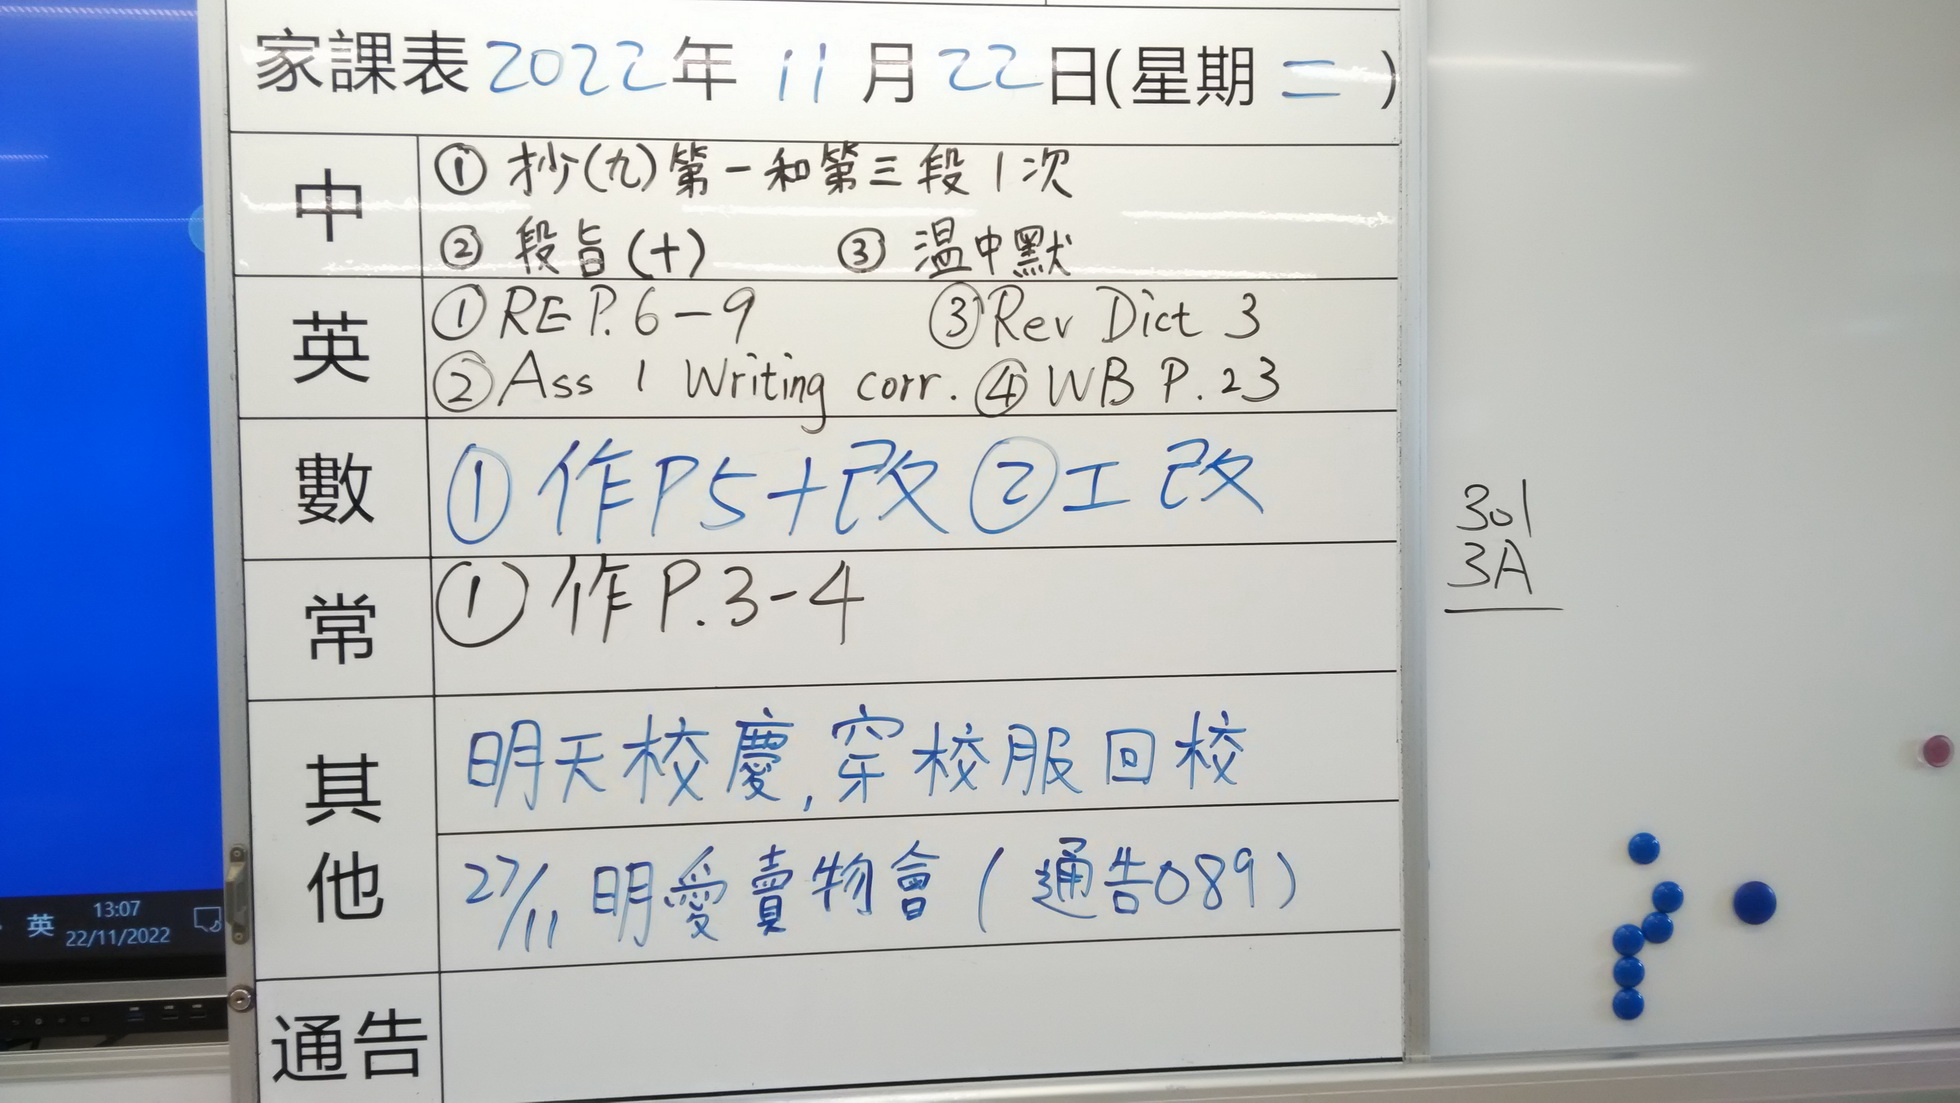 家課表 2022年 11月 22日(星期二)
中
① 抄(九)第一和第三段1次
② 段旨(十) ③ 温中默
英
① RE P.6-9 ③ Rev Dict 3
② Ass 1 Writing corr. ④ WB P.23
數
① 作P5+改 ② 工改
常
① 作P.3-4
其他
明天校慶,穿校服回校
27/11 明愛賣物會(通告089)
通告
301
3A
英
13:07
22/11/2022